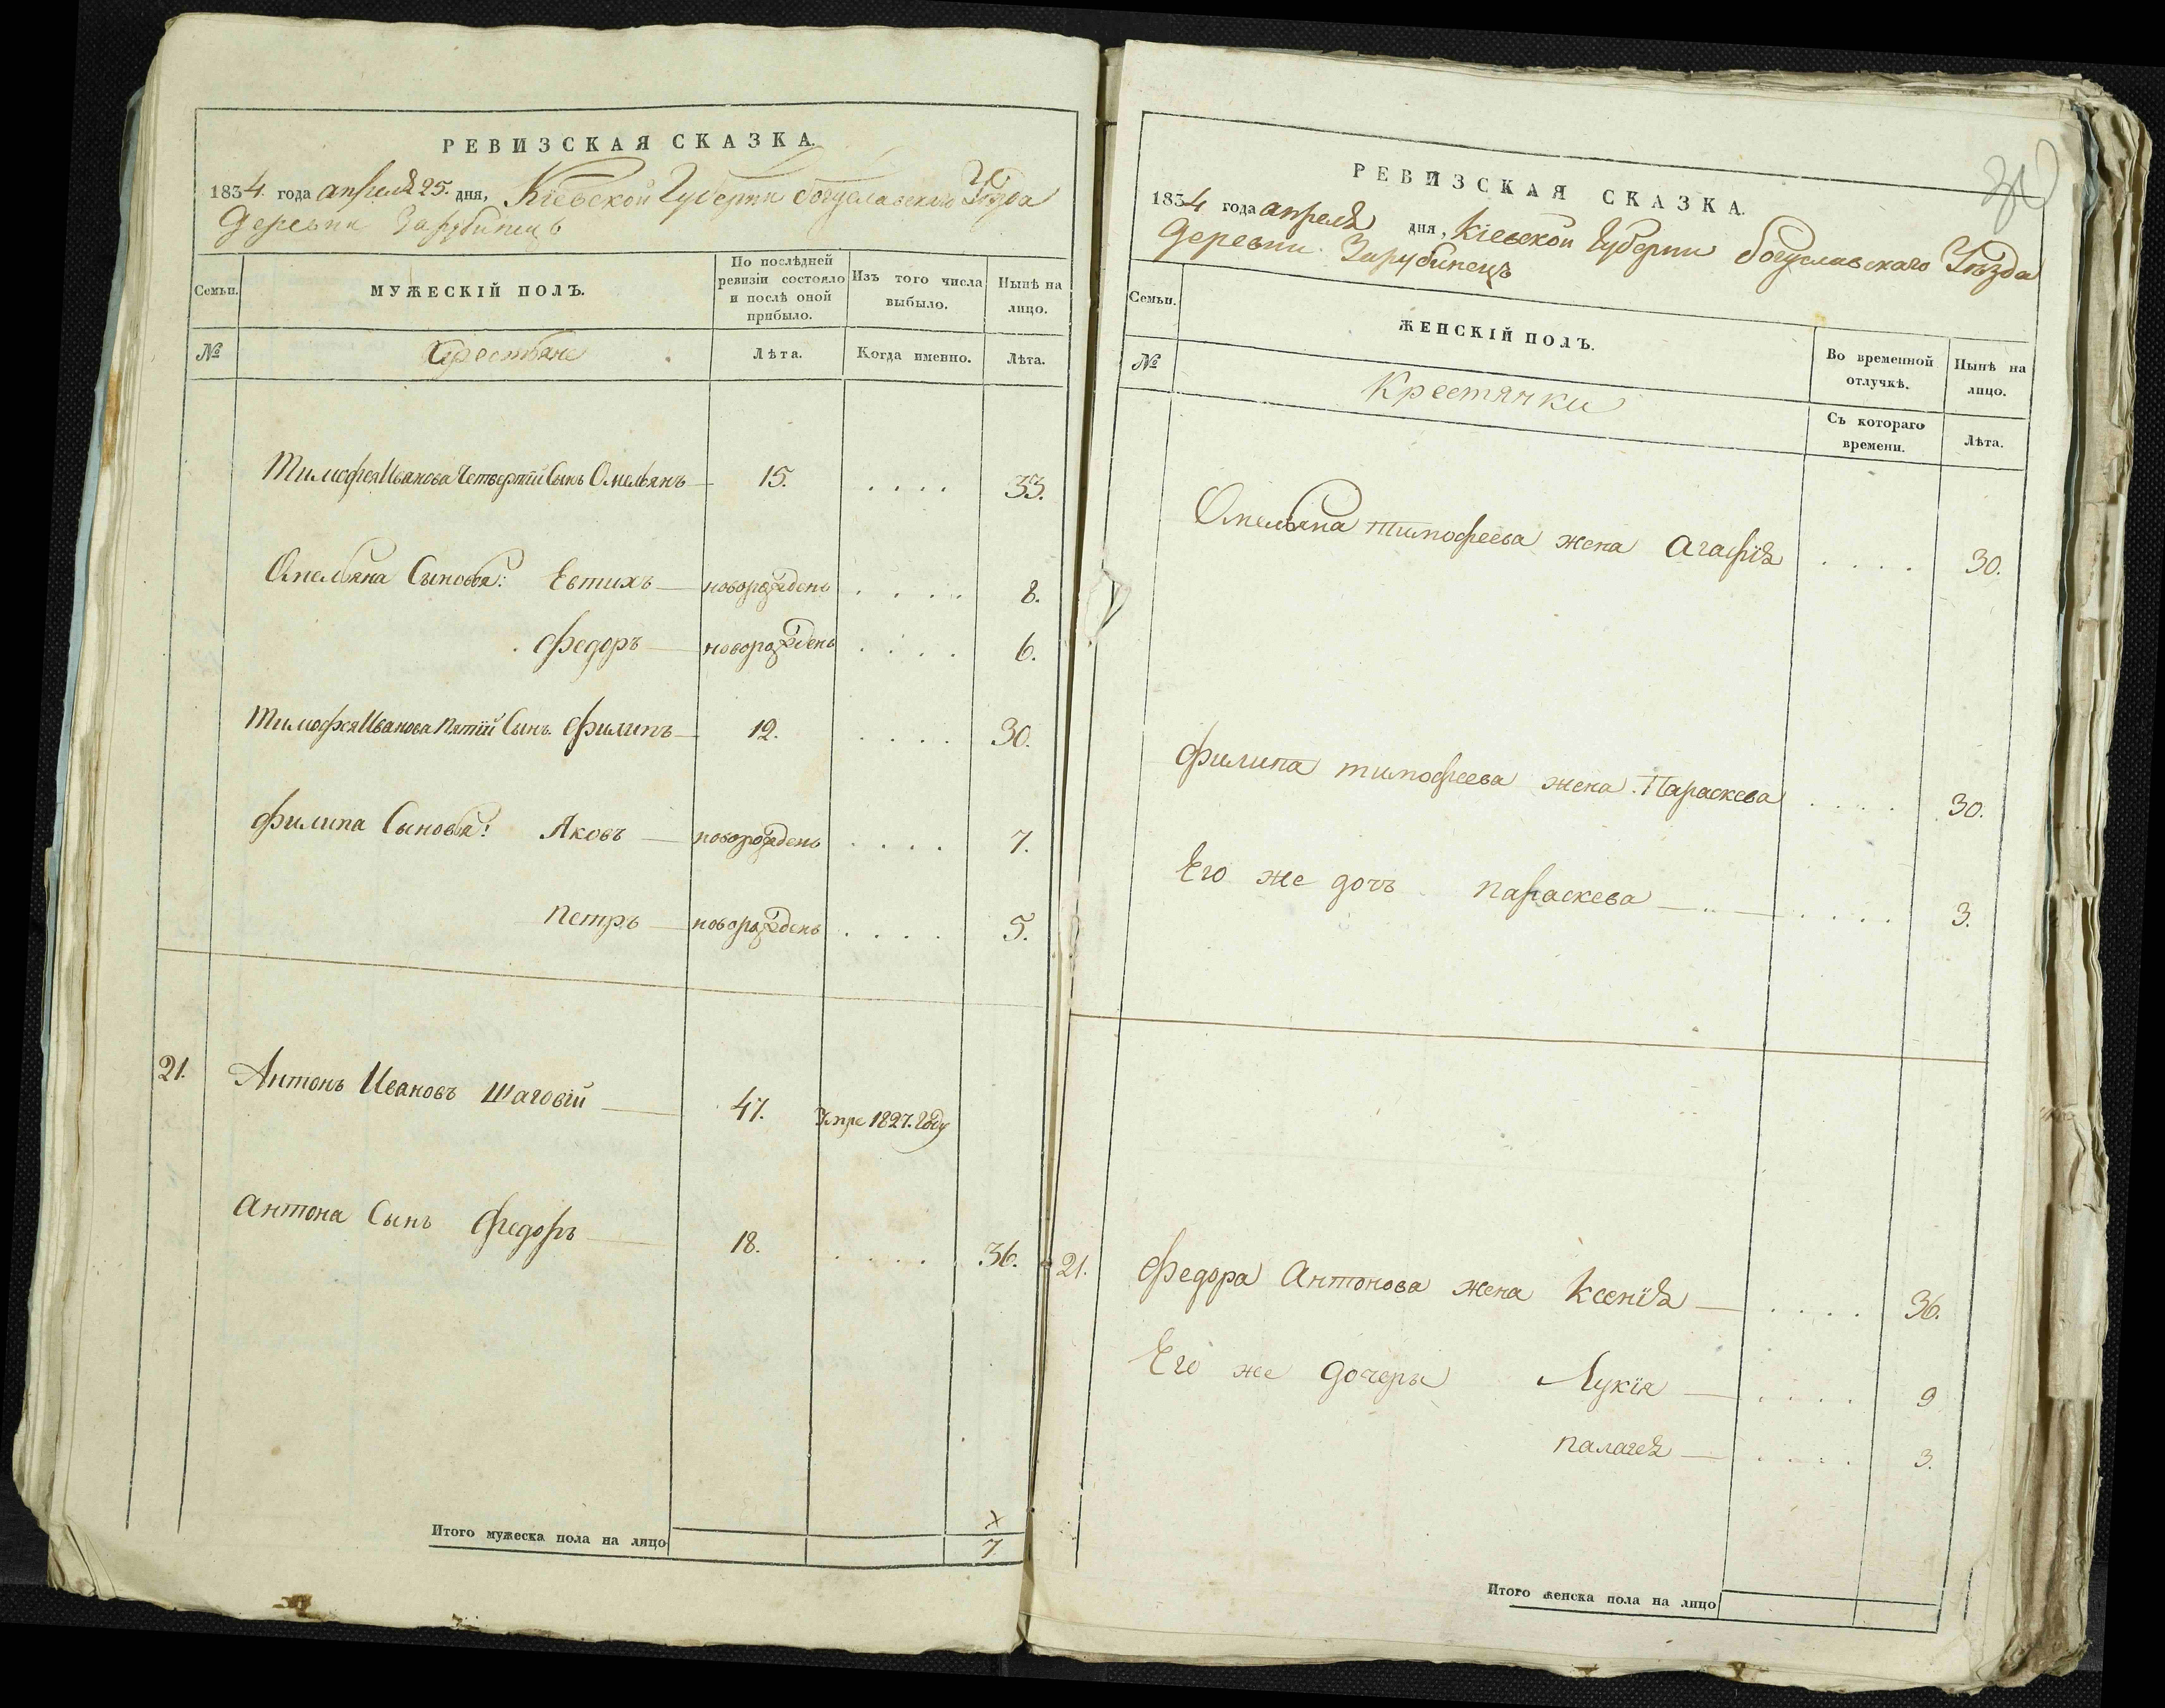 РЕВИЗСКАЯ СКАЗКА.
1834 года апреля 25. дня, Кіевской Губерніи богуславскаго Уѣзда
Деревни Зарубинецъ
Семьи.
МУЖЕСКІЙ ПОЛЪ.
По послѣдней
ревизіи состояло
и послѣ оной
прибыло.
Изъ того числа
выбыло.
Нынѣ на
лицо.
№
Крестьяне
Лѣта.
Когда именно.
Лѣта.
Тимофея Иванова Четвертій Сынъ Омельянъ 15. . . . . 33.
Омельяна Сыновья: Евтихъ новорожденъ . . . . 8.
Федоръ новорожденъ . . . . 6.
Тимофея Иванова пятій Сынъ. Филипъ 12. . . . . 30.
Филипа Сыновья: Яковъ новорожденъ . . . . 7.
Петръ новорожденъ . . . . 5.
21. Антонъ Ивановъ Шаговій 47. Умре 1827. Году
Антона Сынъ Федоръ 18. . . . . 36.
х
Итого мужеска пола на лицо 7
РЕВИЗСКАЯ СКАЗКА.
1834 года апреля дня, Кіевской Губерніи богуславскаго Уѣзда
Деревни Зарубинецъ
Семьи.
ЖЕНСКІЙ ПОЛЪ.
Во временной
отлучкѣ.
Нынѣ на
лицо.
№
Крестянки
Съ котораго
времени.
Лѣта.
Омельяна тимофеева жена Агафія . . . . 30.
Филипа тимофеева жена Параскева . . . . 30.
Его же дочъ параскева . . . . 3.
21. Федора Антонова жена Ксенія . . . . 36.
Его же дочеры Лукія . . . . 9
палагея . . . . 3.
Итого женска пола на лицо